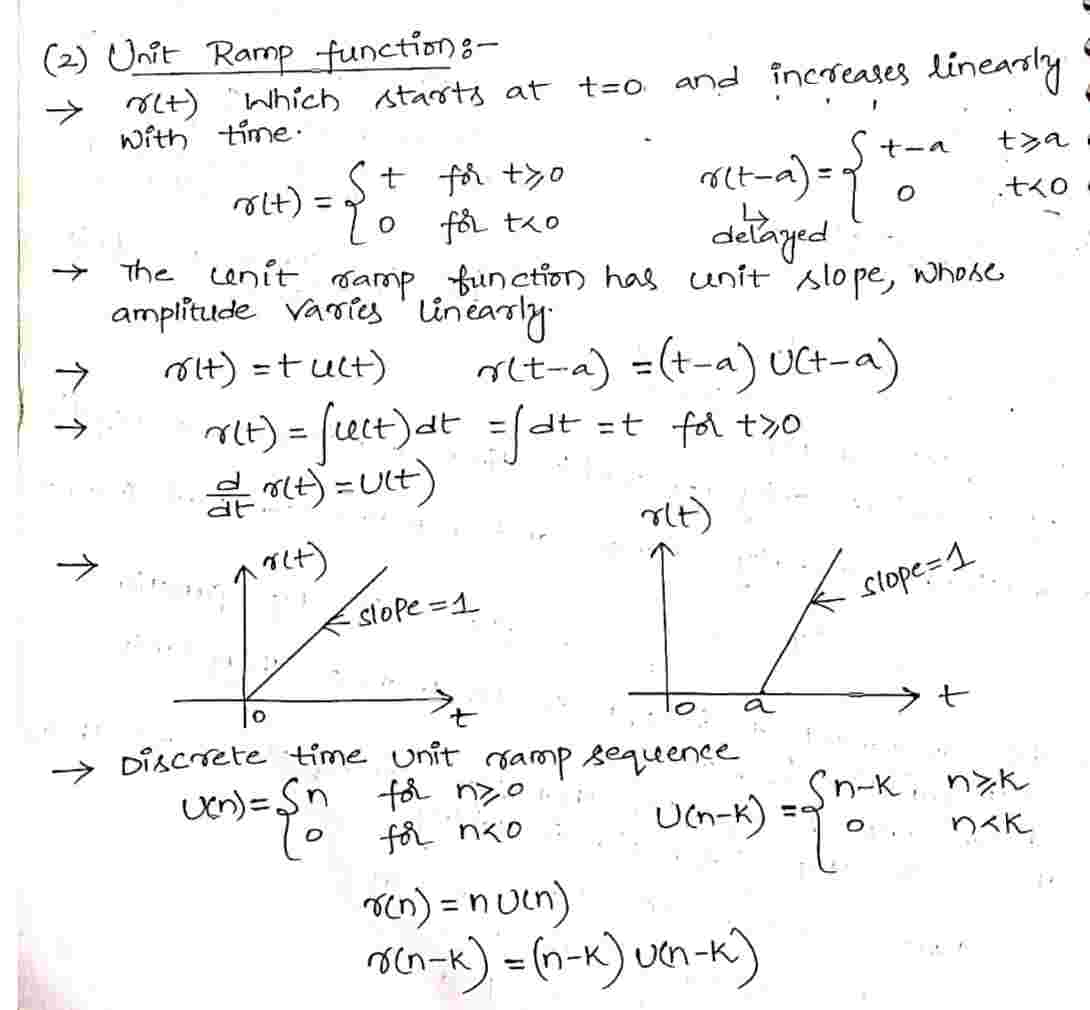 (2) Unit Ramp function:-
→ r(t) which starts at t=0 and increases linearly
with time.
r(t) = { t for t≥0 r(t-a) = { t-a t≥a
0 for t<0 0 t<0
↳ delayed
→ The unit ramp function has unit slope, whose
amplitude varies linearly.
→ r(t) = t u(t) r(t-a) = (t-a) U(t-a)
→ r(t) = ∫u(t)dt = ∫dt = t for t≥0
d/dt r(t) = U(t)
→ r(t) r(t)
slope=1 slope=1
0 t 0 a t
→ Discrete time unit ramp sequence
U(n) = { n for n≥0 U(n-k) = { n-k n≥k
0 for n<0 0 n<k
r(n) = n U(n)
r(n-k) = (n-k) U(n-k)